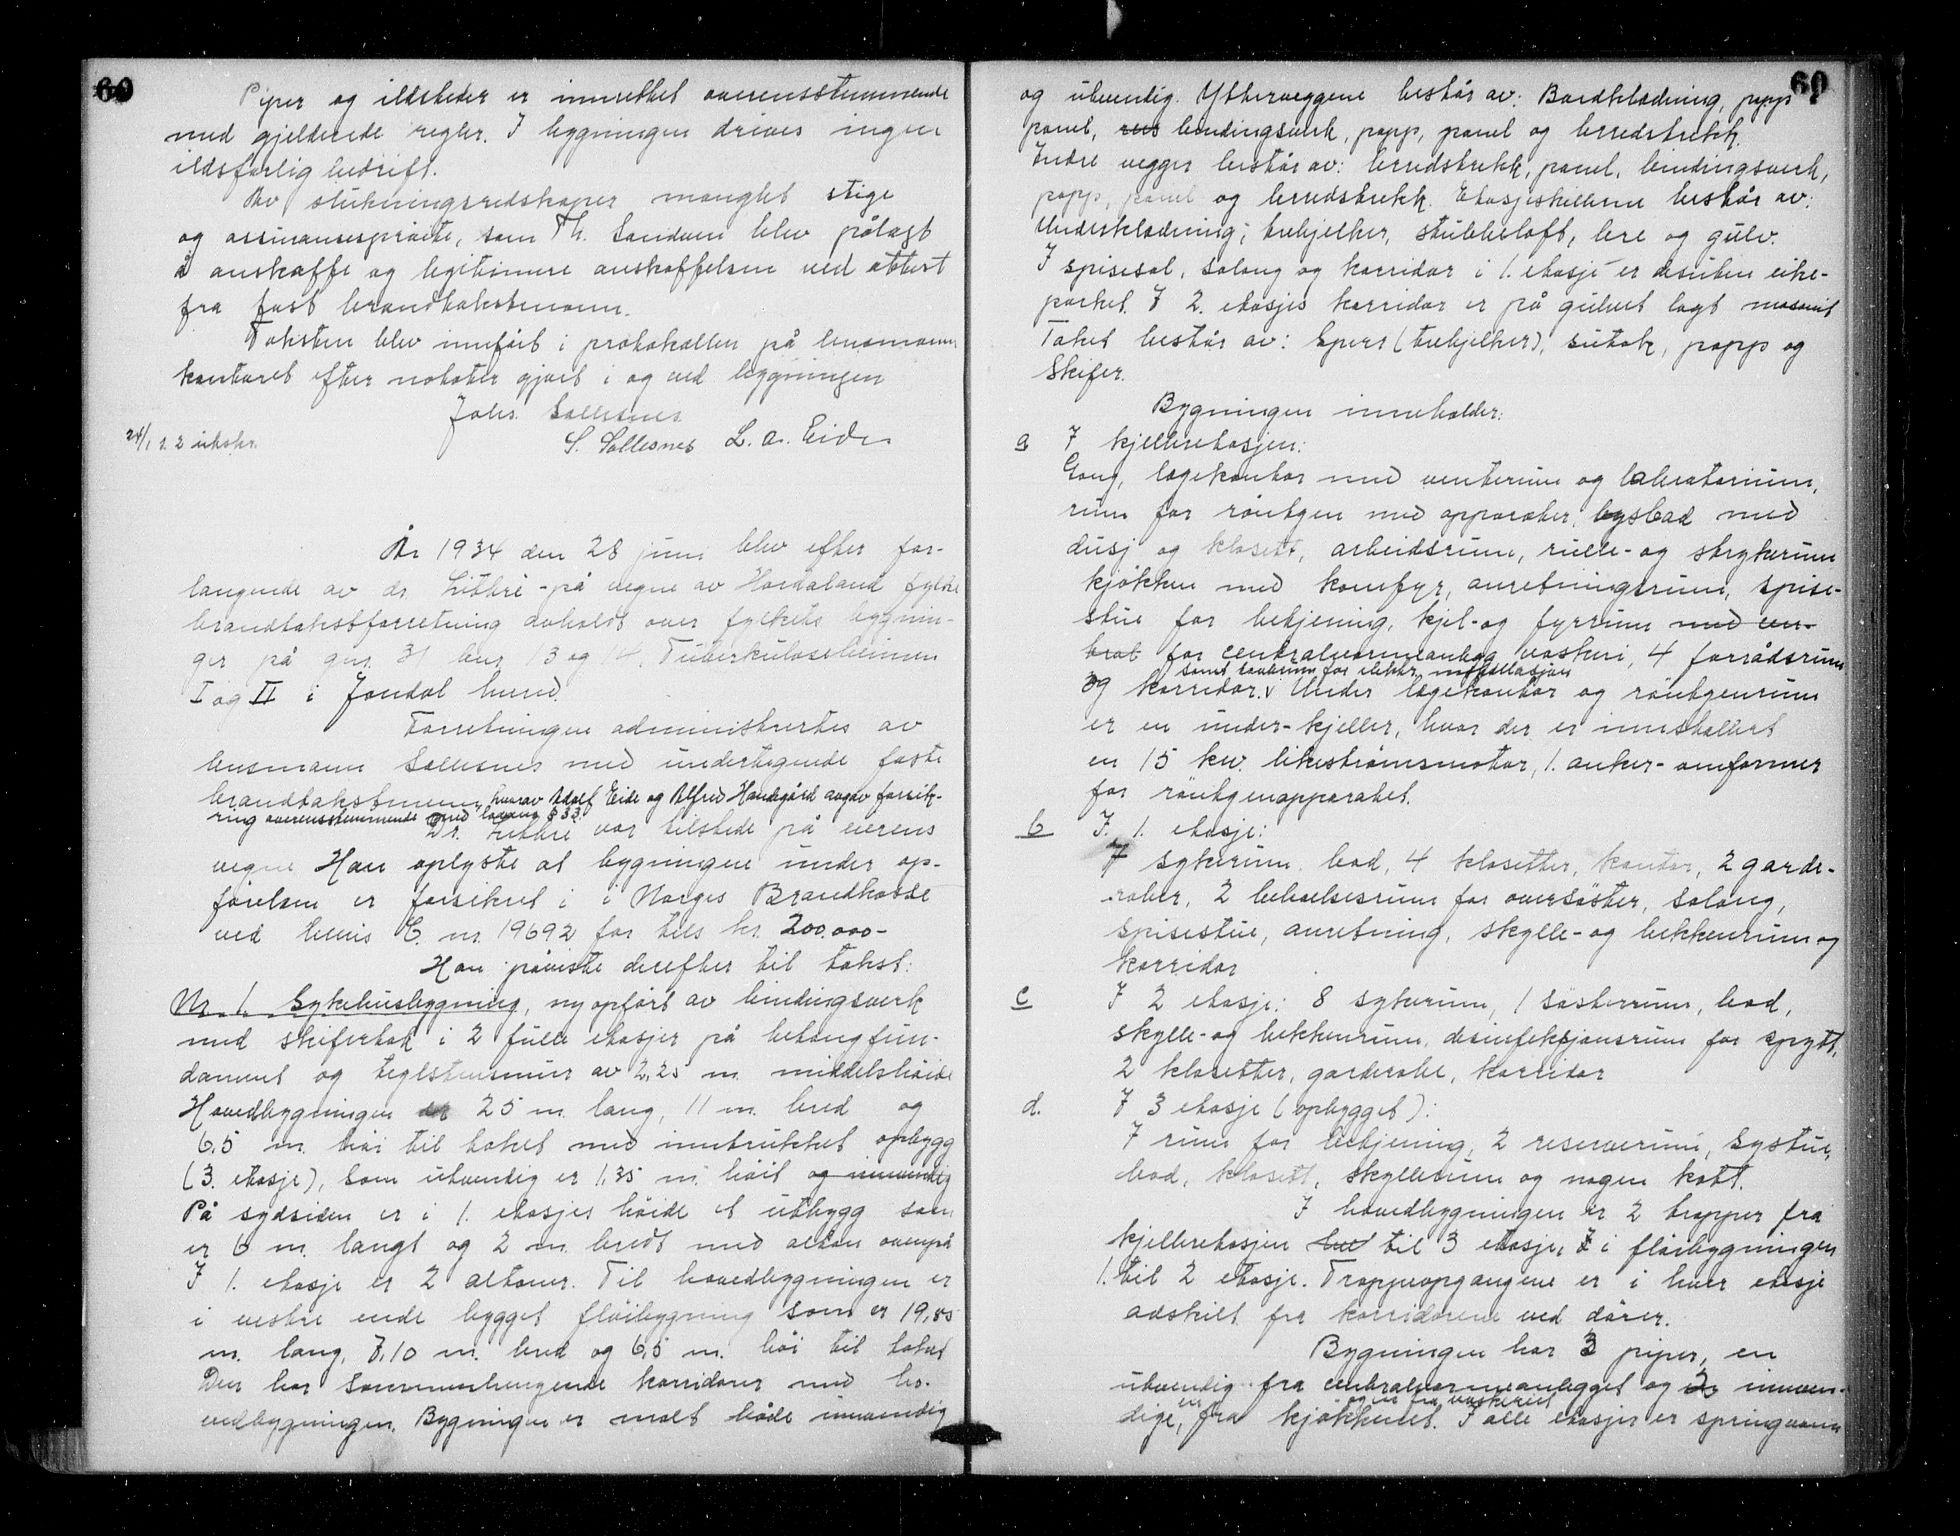 60
Piper og ildsteder er innsettet overensstemmende
med gjeldende regler. I bygningen drives ingen
ildsfarlig bedrift.
Av slukningsredskaper manglet stige
og assuransesprøite, som Th. Sandven blev pålagt
å anskaffe og legitimere anskaffelsen ved attest
fra fast brandtakstmann.
Taksten blev innført i protokollen på lensmanns
kontoret efter notater gjort i og ved bygningen
Johs. Sollesnes
24/1 12 2 utskr. S. Sollesnes L. A. Eide
År 1934 den 28 juni blev efter for-
langende av dr. Lithre - på vegne av Hordaland fylke
brandtakstforretning avholdt over fylkets bygnin-
ger på gnr. 31 bnr 13 og 14, Tuberkuloseheimen
I og II i Jondal herred.
Forretningen administrertes av
lensmann Sollesnes med undertegnede faste
brandtakstmenn, hvorav Adolf Eide og Alfred Handegård avgav forsik-
ring overensstemmende med lovens § 33.
Dr. Lithre var tilstede på eierens
vegne Han oplyste at bygningene under op-
førelsen er forsikret i i Norges Brandkasse
ved bevis C. nr. 19692 for tils kr. 200.000-
Han påviste derefter til takst:
Nr. 1. Sykehusbygning, ny opført av bindingsverk
med skifertak i 2 fulle etasjer på betongfun-
dament og teglstensmur av 2,25 m. middelshøide
Hovedbygningen er 25 m. lang, 11 m. bred og
6,5 m. høi til taket med inntrukket opbygg
(3. etasje), som utvendig er 1,35 m. høit og innvendig
På sydsiden er i 1. etasjes høide et utbygg som
er 6 m. langt og 2 m. bredt med altan ovenpå
I 1. etasje er 2 altaner. Til hovedbygningen er
i vestre ende bygget fløibygning som er 19,85
m. lang, 7,10 m. bred og 6,5 m. høi til taket
Den har sammenhengende korridorer med ho-
vedbygningen. Bygningen er malt både innvendig
60
og utvendig. Ytterveggene består av: Bordklædning, papp
panel, bindingsverk, papp, panel og lerredstrekk.
Indre vegger består av: lerredstrekk, panel, bindingsverk,
papp, panel og lerredstrekk. Etasjeskillerne består av:
Underklædning, trebjelker, stubbeloft, lere og gulv.
I spisesal, salong og korridor i 1. etasje er desuten eike-
parket. I 2. etasjes korridor er på gulvet lagt masonit
Taket består av: Sperr (trebjelker), sutak, papp og
Skifer.
Bygningen inneholder:
a I kjelleretasjen:
Gang, lægekontor med venterum og laboratorium,
rum for røntgen med apparater, lysbad med
dusj og klosett, arbeidsrum, rulle- og strykerum
kjøkken med komfyr, anretningsrum, spise-
stue for betjening, kjel- og fyrrum med cen-
tral for centralvarmeanlegg vaskeri, 4 forrådsrum
samt tavlerum for elektr. installasjon
og korridor. v Under lægekontor og røntgenrum
er en under-kjeller, hvor der er innstallert
en 15 kw. likestrømsmotor, 1. anker-omformer
for røntgenapparatet.
b I. 1. etasje:
7 sykerum, bad, 4 klosetter, kontor, 2 garde-
rober, 2 beboelsesrum for oversøster, salong,
spisestue, anretning, skylle- og bekkenrum og
korridor
c I 2 etasje: 8 sykerum, 1 søsterrum, bad,
skylle- og bekkenrum, desinfeksjonsrum for spytt,
2 klosetter, garderobe, korridor
d. I 3 etasje (opbygget):
7 rum for betjening, 2 reserverum, systue,
bad, klosett, skyllerum og nogen kott.
I hovedbygningen er 2 trapper fra
kjelleretasjen til 3 etasje, i fløibygningen
1. til 2 etasje. Trappeopgangene er i hver etasje
adskilt fra korridorene ved dører.
Bygningen har 3 piper, en
utvendig fra centralvarmeanlegget og 2 innven-
en og en fra vaskeriet
dige, fra kjøkkenet. I alle etasjer er springvann